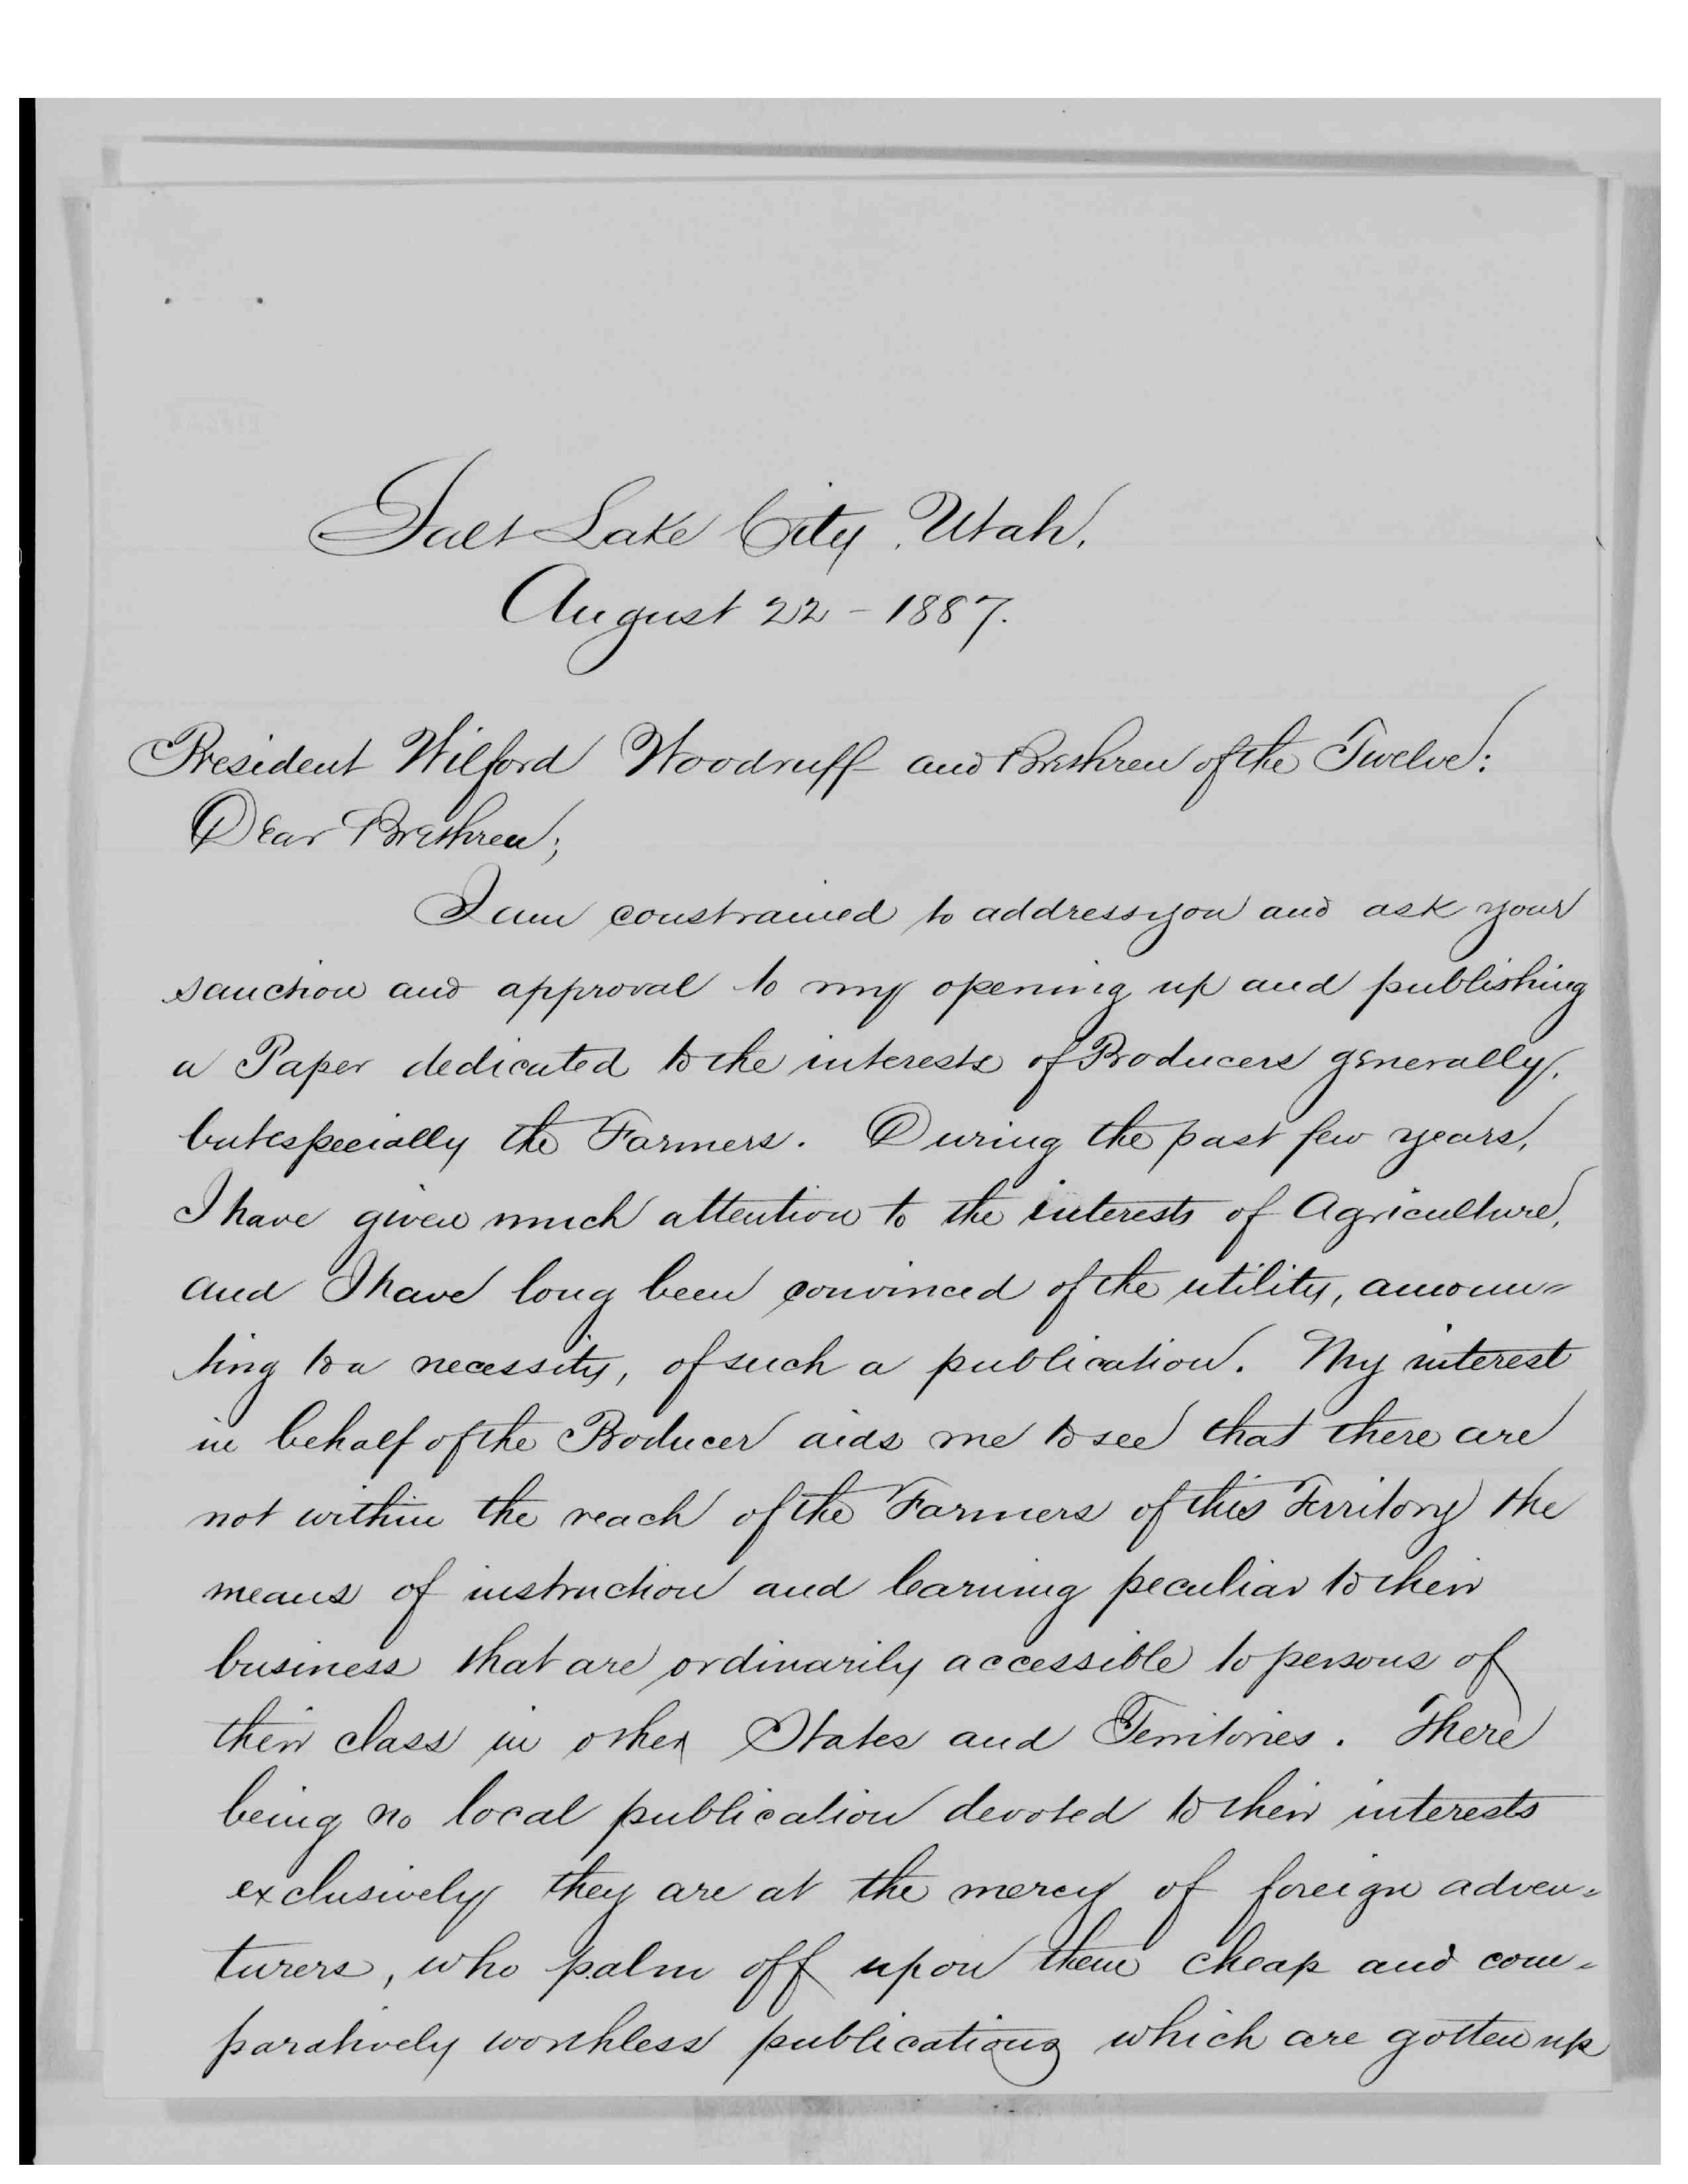 Salt Lake City, Utah,
August 22 - 1887.
President Wilford Woodruff and Brethren of the Twelve:
Dear Brethren;
I am constrained to address you and ask your
sanction and approval to my opening up and publishing
a Paper dedicated to the interests of Producers generally,
but especially the Farmers. During the past few years,
I have given much attention to the interests of Agriculture,
and I have long been convinced of the utility, amoun=
ting to a necessity, of such a publication. My interest
in behalf of the Producer aids me to see that there are
not within the reach of the Farmers of this Territory the
means of instruction and learning peculiar to their
business that are ordinarily accessible to persons of
their class in other States and Territories. There
being no local publication devoted to their interests
exclusively they are at the mercy of foreign adven=
turers, who palm off upon them cheap and com=
paratively worthless publications which are gotten up